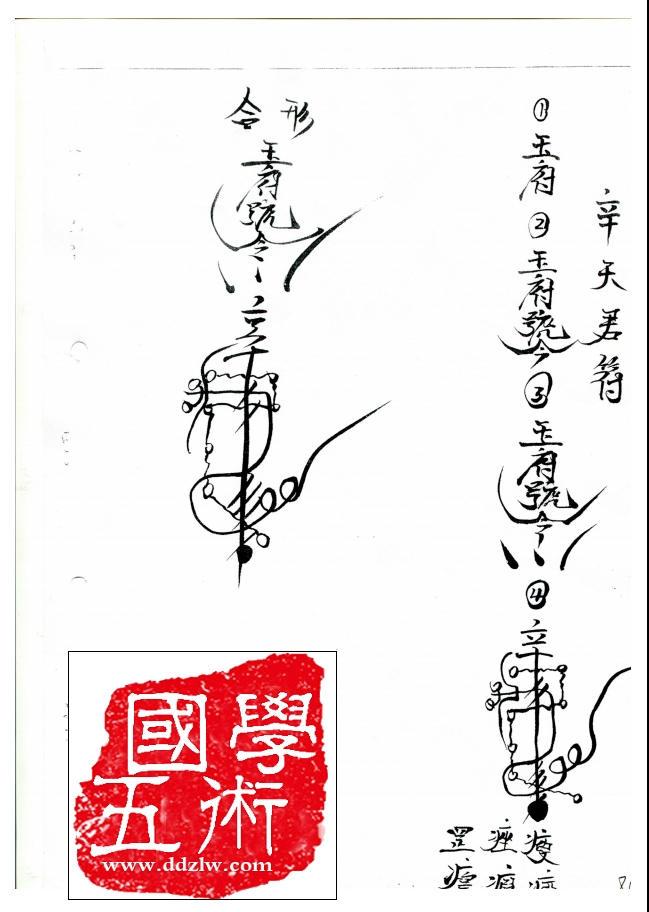 辛天君符
①
玉府
②
玉府號令
③
玉府號令
④
辛
合形
玉府號令
辛
國學
五術
www.ddzlw.com